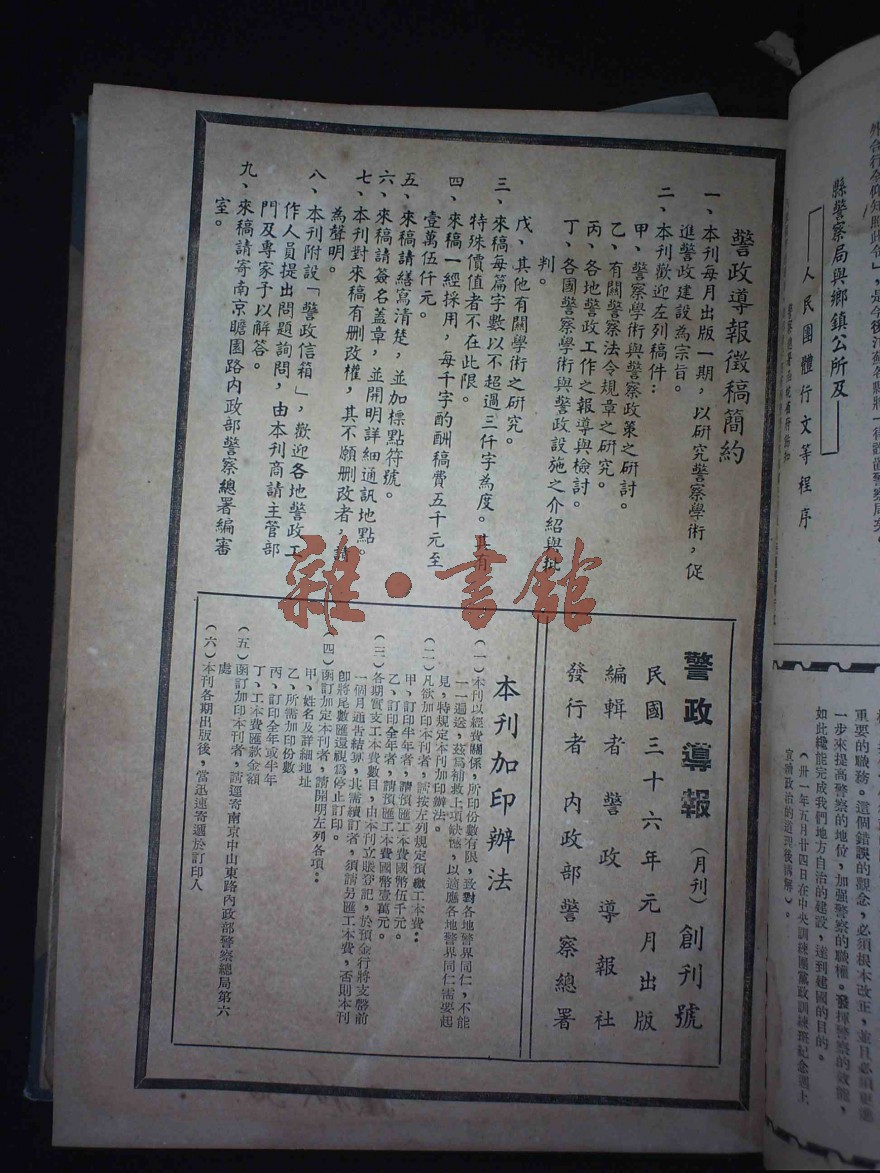 警政導報徵稿簡約
一、本刊每月出版一期，以研究警察學術，促
進警政建設為宗旨。
二、本刊歡迎左列稿件：
甲、警察學術與警察政策之研討。
乙、有關警察法令規章之研究。
丙、各地警政工作之報導與檢討。
丁、各國警察學術與警政設施之介紹與批
判。
戊、其他有關學術之研究。
三、來稿每篇字數以不超過三仟字為度。其有
特殊價值者不在此限。
四、來稿一經採用，每千字酌酬稿費五千元至
壹萬伍仟元。
五、來稿請繕寫清楚，並加標點符號。
六、來稿請簽名蓋章，並開明詳細通訊地點。
七、本刊對來稿有刪改權，其不願刪改者，請
為聲明。
八、本刊附設「警政信箱」，歡迎各地警政工
作人員提出問題詢問，由本刊商請主管部
門及專家予以解答。
九、來稿請寄南京瞻園路內政部警察總署編審
室。
警政導報（月刊）創刊號
民國三十六年元月出版
編輯者 警政導報社
發行者 內政部警察總署
本刊加印辦法
（一）本刊以經費關係，所印份數有限，致對各地警界同仁，不能
一一遍送，茲為補救上項缺憾，以適應各地警界同仁需要起
見，特規定本刊加印辦法。
（二）凡欲加印本刊者，請按左列規定預繳工本費：
甲、訂印半年者，請預匯工本費國幣伍千元。
乙、訂印全年者，請預匯工本費國幣壹萬元。
（三）各期實支工本費數目，由本刊立賬登記，於預金行將支罄前
一個月通告結算，其需續訂者，須請另匯工本費，否則本刊
即將尾數匯還視為停止訂印。
（四）函訂加定本刊者，請開明左列各項：
甲、姓名及詳細地址
乙、所需加印份數
丙、訂印全年或半年
丁、工本費匯款金額
（五）函訂加印本刊者，請逕寄南京中山東路內政部警察總局第六
處
（六）本刊各期出版後，當迅速寄遞於訂印人
雜·書館
縣警察局與鄉鎮公所及
人民團體行文等程序
重要的職務。這個錯誤的觀念，必須根本改正，並且必須更進
一步來提高警察的地位，加強警察的職權。發揮警察的效能，
如此纔能完成我們地方自治的建設，達到建國的目的。
（卅一年五月廿四日在中央訓練團黨政訓練班紀念週上